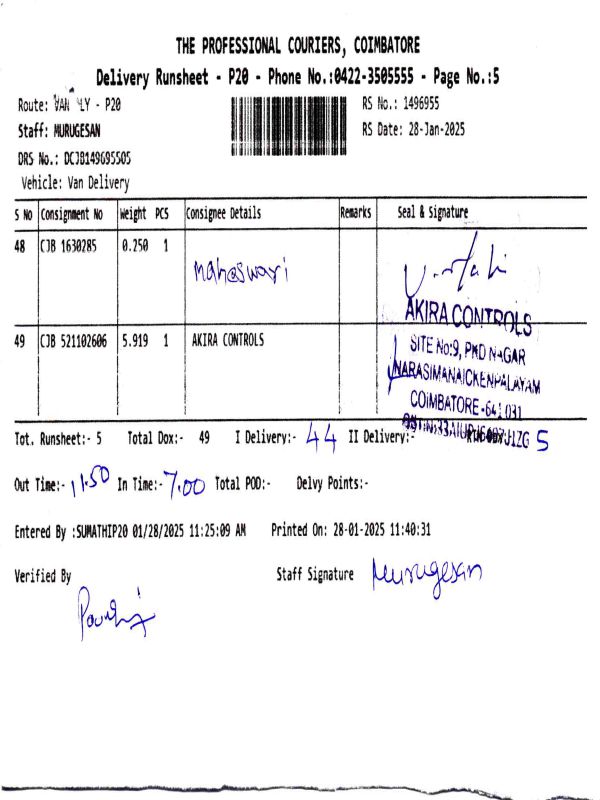 THE PROFESSIONAL COURIERS, COIMBATORE
Delivery Runsheet - P20 - Phone No.:0422-3505555 - Page No.:5
Route: VAN LY - P20
RS No.: 1496955
Staff: MURUGESAN
RS Date: 28-Jan-2025
DRS No.: DCJB149695505
Vehicle: Van Delivery
S No Consignment No Weight PCS Consignee Details Remarks Seal & Signature
48 CJB 1630285 0.250 1 Maheswari
AKIRA CONTROLS
49 CJB 521102606 5.919 1 AKIRA CONTROLS
SITE No:9, PND NAGAR
NARASIMANAICKENPALAYAM
COIMBATORE-641 031
Tot. Runsheet:- 5 Total Dox:- 49 I Delivery:- 44 II Delivery:- 5
Out Time:- 11.50 In Time:- 7.00 Total POD:- Delvy Points:-
Entered By :SUMATHIP20 01/28/2025 11:25:09 AM Printed On: 28-01-2025 11:40:31
Verified By Staff Signature Murugesan